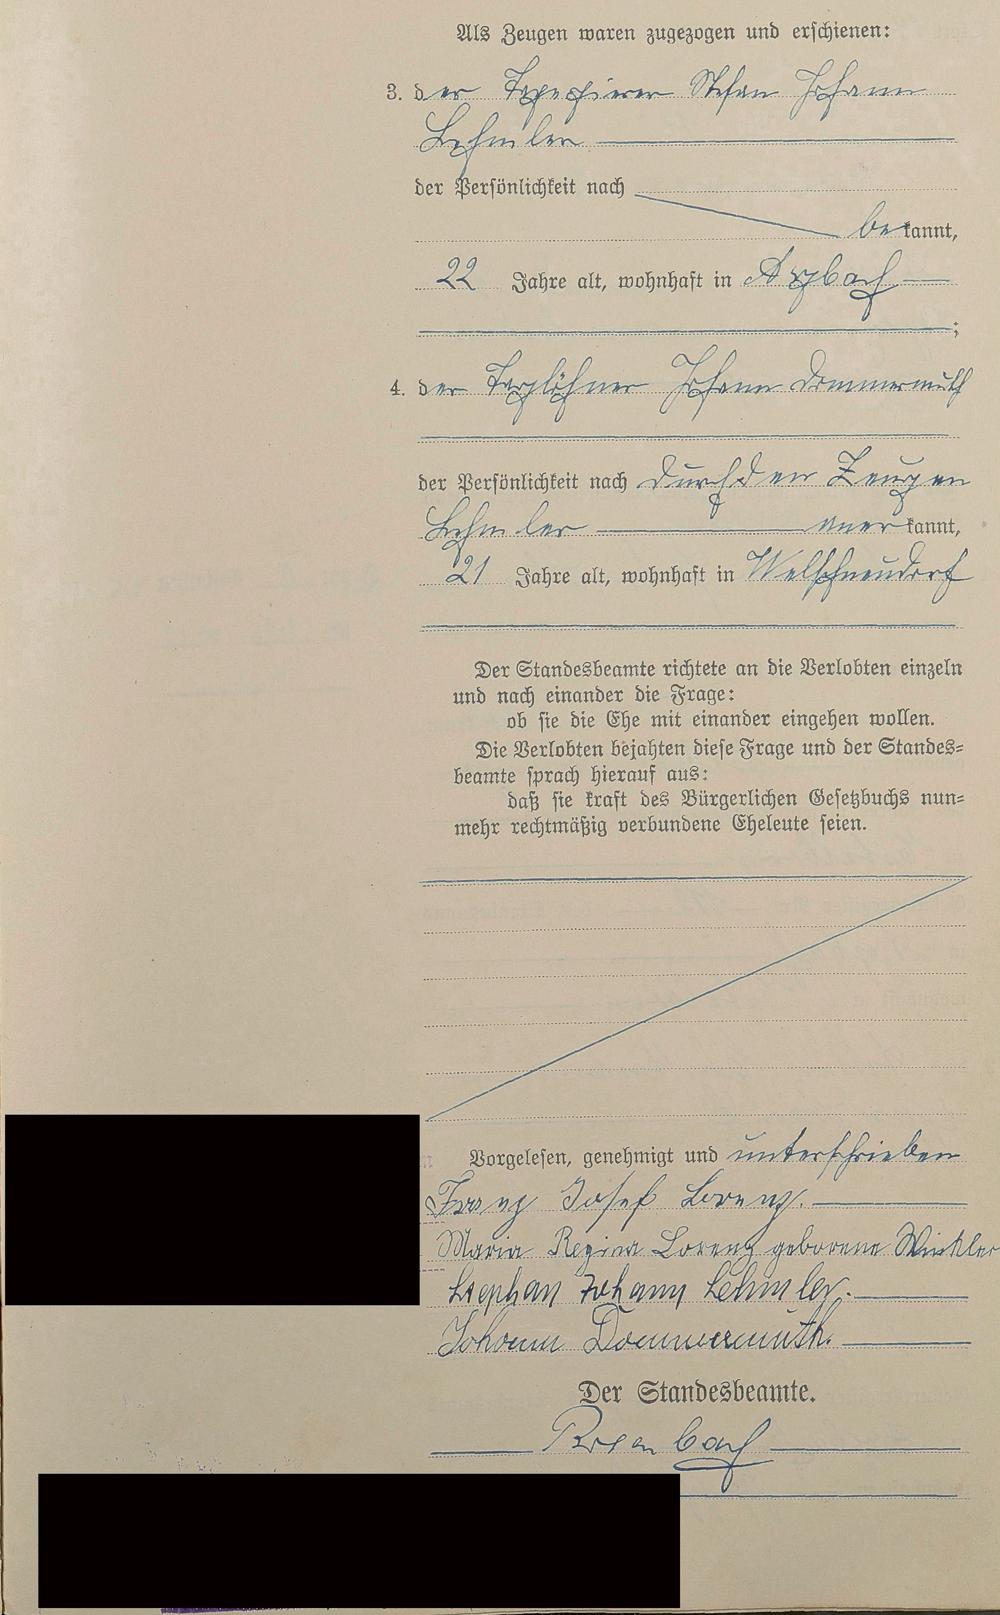 Als Zeugen waren zugezogen und erschienen:
3. der Tapezierer Stefan Johann
Lehmler
der Persönlichkeit nach
bekannt,
22 Jahre alt, wohnhaft in Arzbach
;
4. der Taglöhner Johann Dommermuth
der Persönlichkeit nach durch den Zeugen
Lehmler anerkannt,
21 Jahre alt, wohnhaft in Welschneudorf
Der Standesbeamte richtete an die Verlobten einzeln
und nach einander die Frage:
ob sie die Ehe mit einander eingehen wollen.
Die Verlobten bejahten diese Frage und der Standes=
beamte sprach hierauf aus:
daß sie kraft des Bürgerlichen Gesetzbuchs nun=
mehr rechtmäßig verbundene Eheleute seien.
Vorgelesen, genehmigt und unterschrieben
Franz Josef Lorenz.
Maria Regina Lorenz geborene Winkler
Stephan Johann Lehmler.
Johann Dommermuth.
Der Standesbeamte.